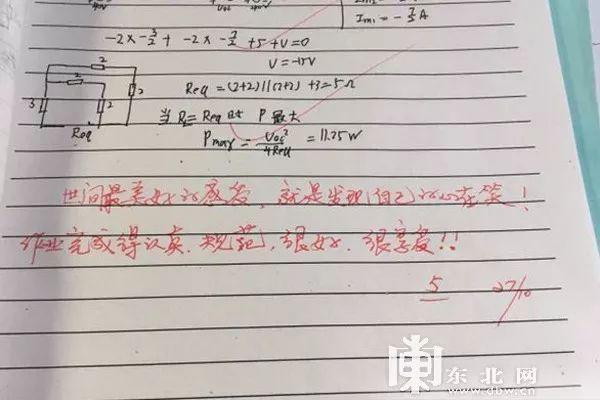 Im₁ = -7/3 A
-2×-3/2 + -2×-7/2 +5+V=0
V = -15V
2
2
3
2
2
Req
Req = (2+2)//(2+2) +3=5Ω
当 RL=Req时 P最大
Pmax = Uoc²/4Req = 11.25W
世间最美好的感受，就是发现自己的心在笑！
作业完成得认真、规范，很好、很享受！！
5 27/10
东北网
www.dbw.cn